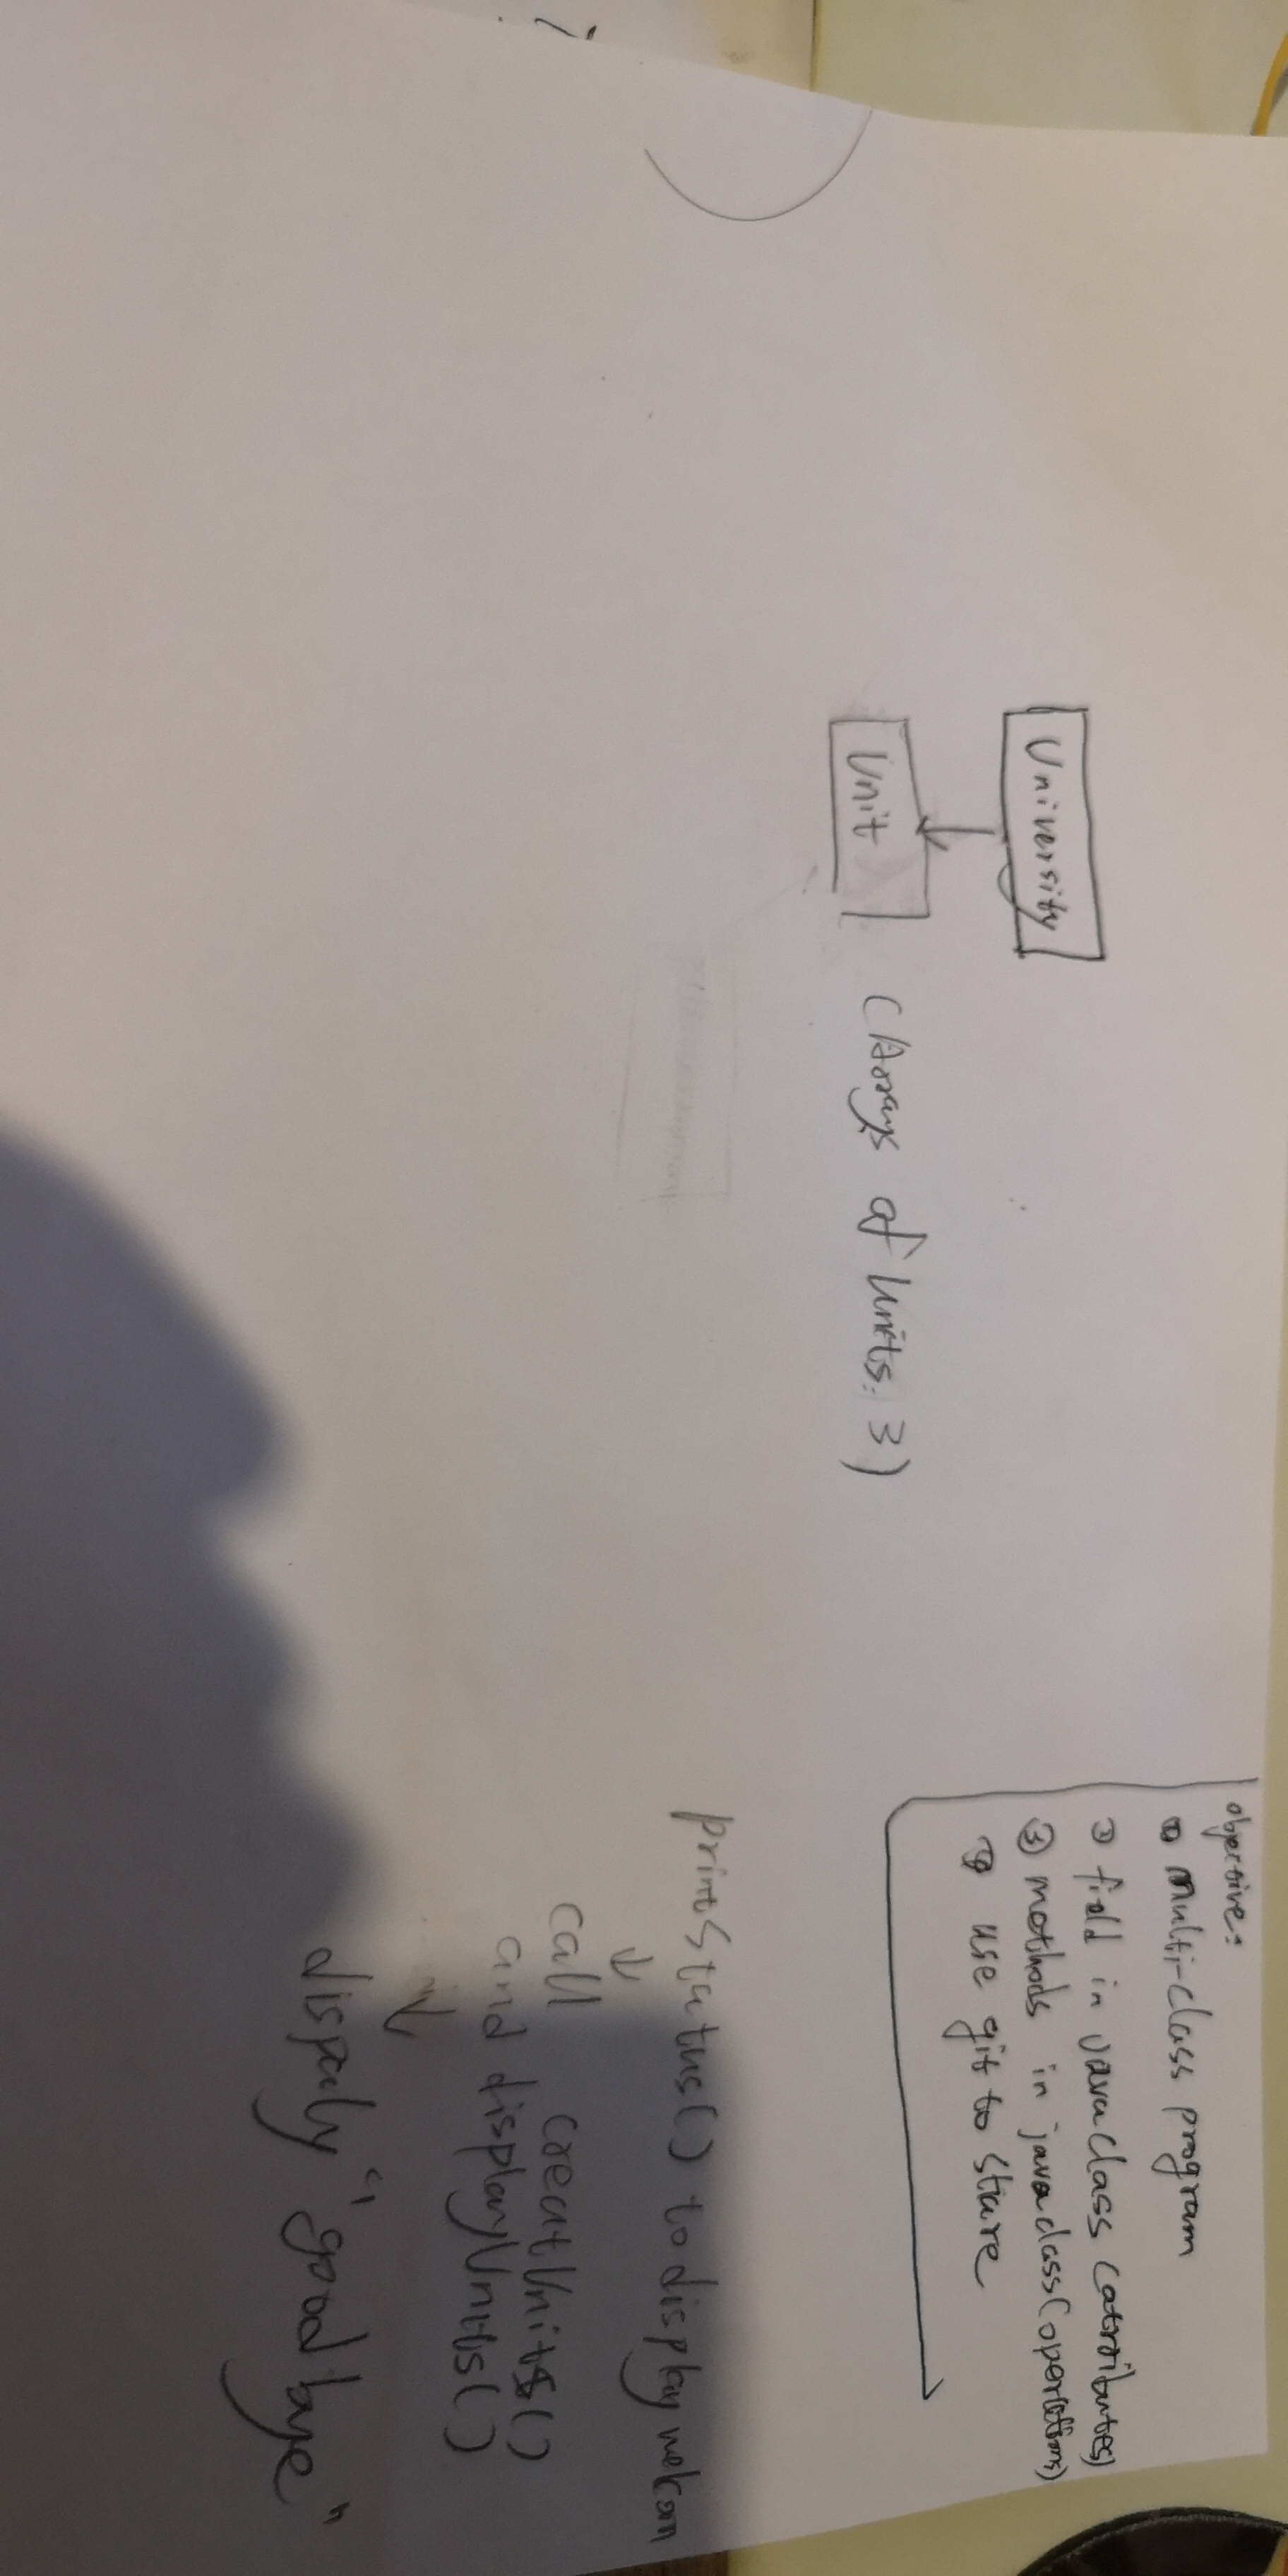 objective:
① multi-class program
② field in java class (attributes)
③ methods in java class (operations)
④ use git to share
University
Unit (Arrays of Units: 3)
printStatus() to display welcom
call creatUnits()
and displayUnits()
dispaly "good bye"